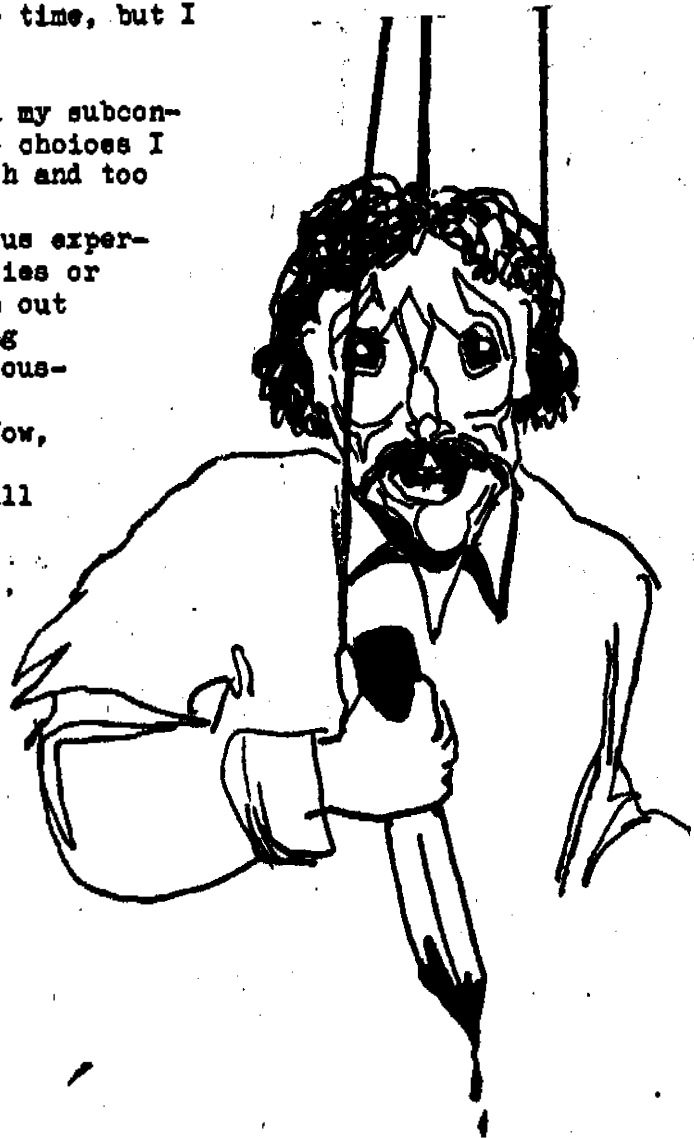 time, but I
my subcon-
choices I
h and too
us exper-
ies or
out
g
ous-
ow,
ll
,